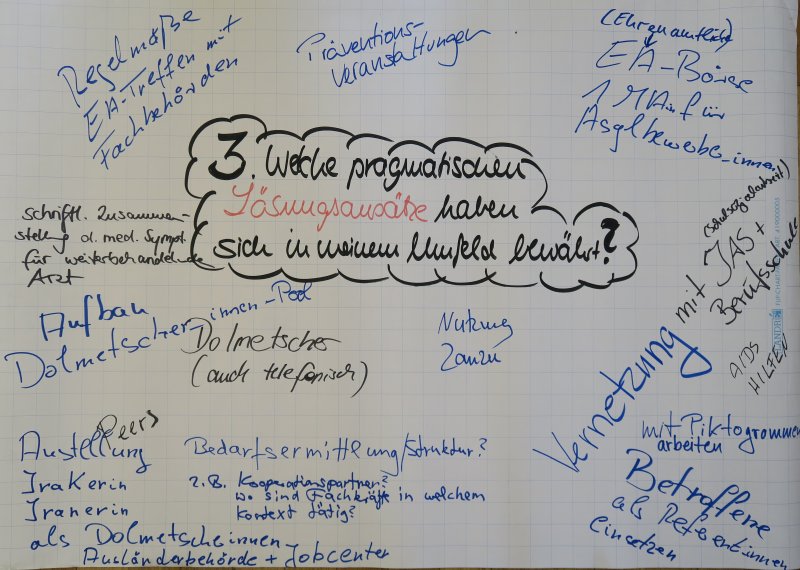 Regelmäße
EA-Treffen mit
Fachbehörden
Präventions-
veranstaltungen
(Ehrenamtliche)
EA-Börse
1 MA in für
Asylbewerber_innen
3. Welche pragmatischen
Lösungsansätze haben
sich in meinem Umfeld bewährt?
schriftl. Zusammen-
stellung d. med. Sympt.
für weiterbehandelnde
Arzt
Aufbau
Dolmetscher_innen-Pool
Dolmetscher
(auch telefonisch)
Nutzung
Zanzu
Vernetzung mit JAS +
(Schulsozialarbeit)
Berufsschule
AIDS
HILFEN
mit Piktogrammen
arbeiten
Betroffene
als Referent_innen
einsetzen
Peers
Austellung
Irakerin
Iranerin
als Dolmetscheinnen
Ausländerbehörde + Jobcenter
Bedarfsermittlung/Struktur?
z.B. Kooperationspartner?
wo sind Fachkräfte in welchem
Kontext tätig?